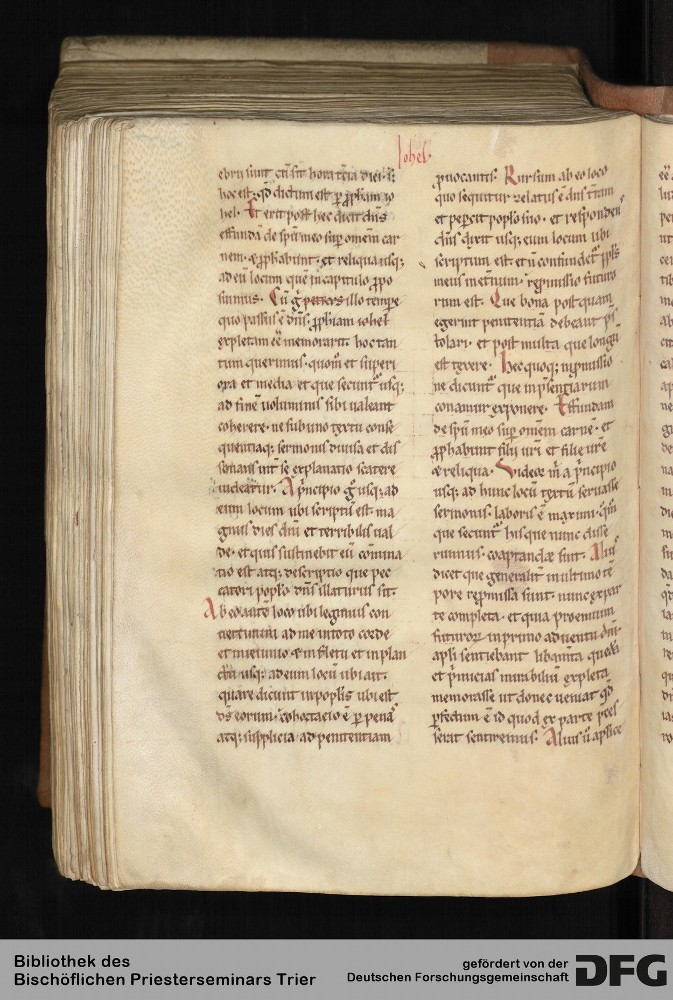 Iohel·
ebrii sunt cū sit hora t̄cia diei· s;
hoc est qd̄ dictum est ꝑ ꝓph̄am io
hel· Et erit post hec dicit dn̄s
effundā de sp̄u meo suꝑ omēm car
nem· & ꝓphabunt· et reliqua usq;
ad eū locum quē in capitulo ꝓpo
suimus· Cū g̊ petrus illo tempe
quo passus ē dn̄s· ꝓph̄iam iohel
expletam eē memorarit· hoc tan
tum querimus· quom̄ et supeři
ora et media et que secunt̄ usq;
ad finē uoluminis sibi ualeant
coherere· ne sub uno textu conse
quentiaq; sermonis diuisa et dis
sonans int̄ se explanatio scatere
uideatur· A pͥncipio g̊ usq; ad
eum locum ubi scriptū est· ma
gnus dies dn̄i et terribilis ual
de· et quis sustinebit eū cōmina
tio est atq; descriptio que pec
catori poplo dn̄s illaturus sit·
Ab eo aūte loco ubi legimus con
uertimini ad me in toto corde
et in ieiunio & in fletu et in plan
ctu usq; ad eum locū ubi ait·
quare dicunt in poplis ubi est
ds̄ eorum· cohortacio ē ꝑ penā
atq; supplicia· ad penitentiam
ꝓuocantis· Rursum ab eo loco
quo sequitur zelatus ē dn̄s t̄ram
et pepercit poplo suo· et responden̄
dn̄s dixit usq; eum locum ubi
scriptum est· et n̄ confundet̄ ppl̄s
meus in et̄num· repmissio futuro
rum est· Que bona post quam
egerint penitentiā debeant p̄s
tolari· et post multa que longū
est texere· Hec quoq; in pmissio
ne dicunt̄ que in p̄sentiarum
conamur exponere· Effundam
de sp̄u meo suꝑ omēm carnē· et
ꝓphabunt filii ur̄i et filie ur̄e
& reliqua· Videor m̄ a pͥncipio
usq; ad hunc locū textū seruasse
sermonis· laboris ē maximi· qm̄
que secunt̄ his que nunc disse
ruimus· coaptande sint· Alius
dicet que generalit̄ in ultimo tē
pore repmissa sunt· nunc ex par
te completa· et quia proemium
futuroꝝ in primo aduentu dn̄i·
apl̄i sentiebant libamīta quedā
et pͥmicias mirabiliū expleta
memorasse ut donec ueniat qd̄
pfectum ē id quod ex parte pces
serat sentiremus· Alius ū apl̄ice
Bibliothek des
Bischöflichen Priesterseminars Trier
gefördert von der
Deutschen Forschungsgemeinschaft
DFG